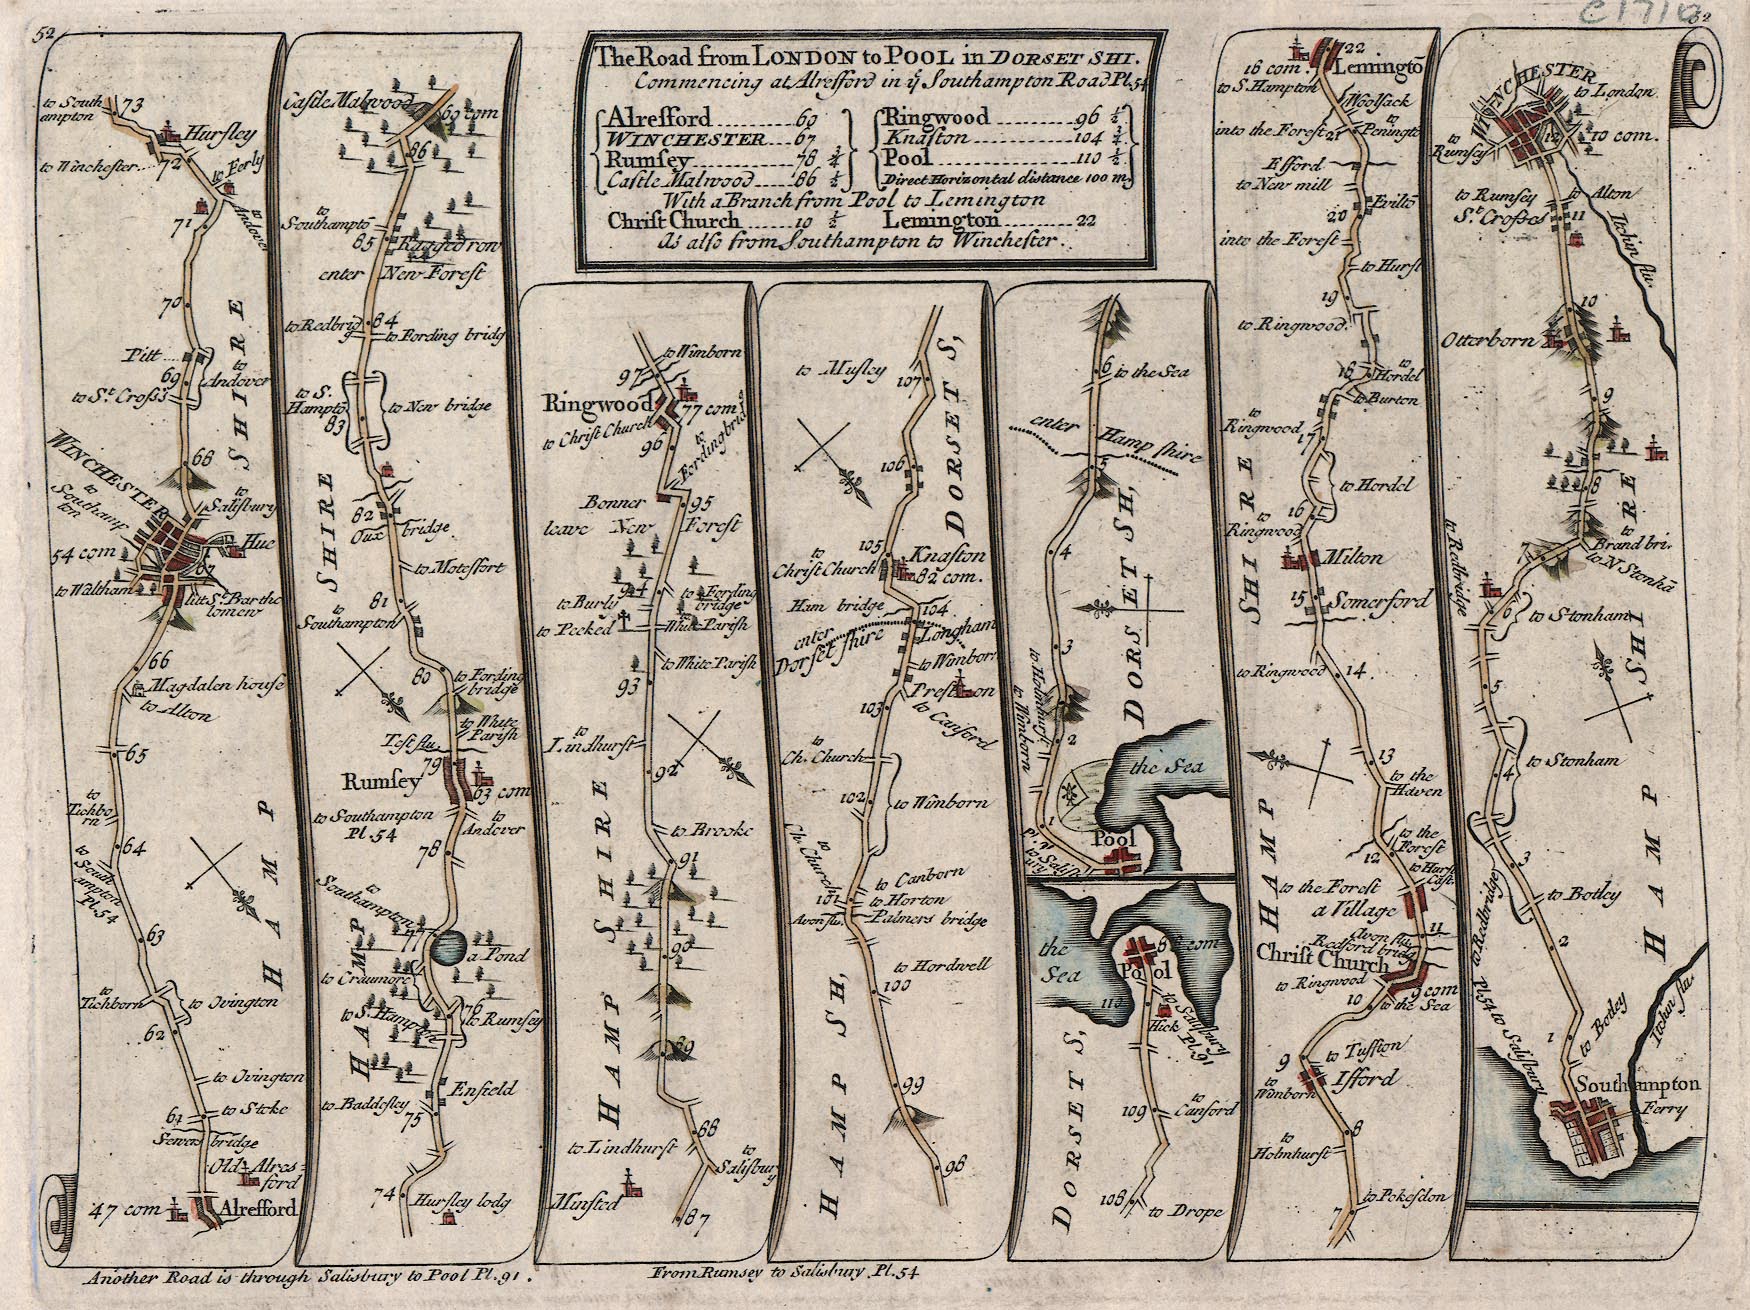 52
C1710
52
The Road from LONDON to POOL in DORSET SHI.
Commencing at Alresford in ye Southampton Road Pl.54
Alresford 60
WINCHESTER 67
Rumsey 78 3/4
Castle Malwood 86 1/2
Ringwood 96 1/2
Knaston 104 3/4
Pool 110 1/2
Direct Horizontal distance 100 m.
With a Branch from Pool to Lemington
Christ Church 10 1/2 Lemington 22
As also from Southampton to Winchester.
to South
ampton
73
Hursley
to Winchester
72
to Ferly
to Andover
71
70
Pitt
to Andover
69
to St. Cross
68
WINCHESTER
to Southamp
ton
to Salisbury
54 com
Hue
67
to Waltham
litt St. Bartho
lomew
66
Magdalen house
to Alton
65
to Tichbo
rn
64
to South
ampton
Pl.54
63
to Tichborn
to Ovington
62
to Ovington
61
to Stoke
Sewers bridge
Old Alres=
ford
47 com
Alresford
HAMP SHIRE
Castle Malwood
69 com
86
to Southamptō
85
Ragged row
enter New Forest
to Redbrid
g
84
to Fording bridg
to S.
Hamptō
83
to New bridge
82
Oux bridge
to Motesfort
81
to Southampton
80
to Fording
bridge
to White
Parish
Test flu.
79
Rumsey
63 com
to Southampton
Pl.54
to Andover
78
to Southampton
77
a Pond
to Craumore
76
to S. Hampton
to Rumsey
Enfield
to Baddesley
75
74
Hursley lodg
HAMP SHIRE
to Wimborn
97
Ringwood
77 com
to Christ Church
to Fordingbridg
96
Bonner
95
leave New Forest
94
to Burly
to Fording
bridge
to Pecked
White Parish
to White Parish
93
to Lindhurst
92
to Brooke
91
90
89
88
to Lindhurst
to Salisbury
Minsted
87
HAMP SHIRE
to Musley
107
106
105
Knaston
82 com.
to Christ Church
Ham bridge
104
enter Dorset shire
Longham
to Wimborn
Preston
103
to Canford
to Ch. Church
102
to Wimborn
to Ch. Church
to Canborn
101
to Horton
Avon flu.
Palmers bridge
to Hordwell
100
99
98
DORSET S,
HAMP SH,
6
to the Sea
enter Hamp shire
5
4
3
to Wimborn
2
the Sea
1
Pool
DORSET SH,
the
Sea
8 com
Pool
110
Hick
to Salisbury
Pl.91
109
to Canford
108
to Drope
DORSET S,
22
16 com.
Lemingtō
to S. Hampton
Woolsack
into the Forest
21
Penington
Efford
to New mill
20
Eviltō
into the Forest
to Hurst
19
to Ringwood
18
to Hordel
to Burton
to Ringwood
17
to Hordel
16
to Ringwood
Milton
15
Somerford
to Ringwood
14
13
to the
Haven
to the
Forest
12
to Hurst
Cast.
to the Forest
a Village
11
Avon flu.
Redford bridg
Christ Church
9 com
to Ringwood
to the Sea
10
9
to Tussion
Ifford
to Winborn
8
to Holmhurst
to Pokesdon
7
HAMP SHIRE
WINCHESTER
to London
to Rumsey
12
10 com.
to Rumsey
to Alton
St. Crosses
11
Itchin flu.
10
Otterborn
9
8
to Brandbri.
to N Stonhā
7
to Redbridge
6
to Stonham
5
4
to Stonham
3
to Redbridge
to Botley
2
Pl.54 to Salisbury
1
to Botley
Itchin flu.
Southampton
Ferry
HAMP SHIRE
Another Road is through Salisbury to Pool Pl.91.
From Rumsey to Salisbury Pl.54